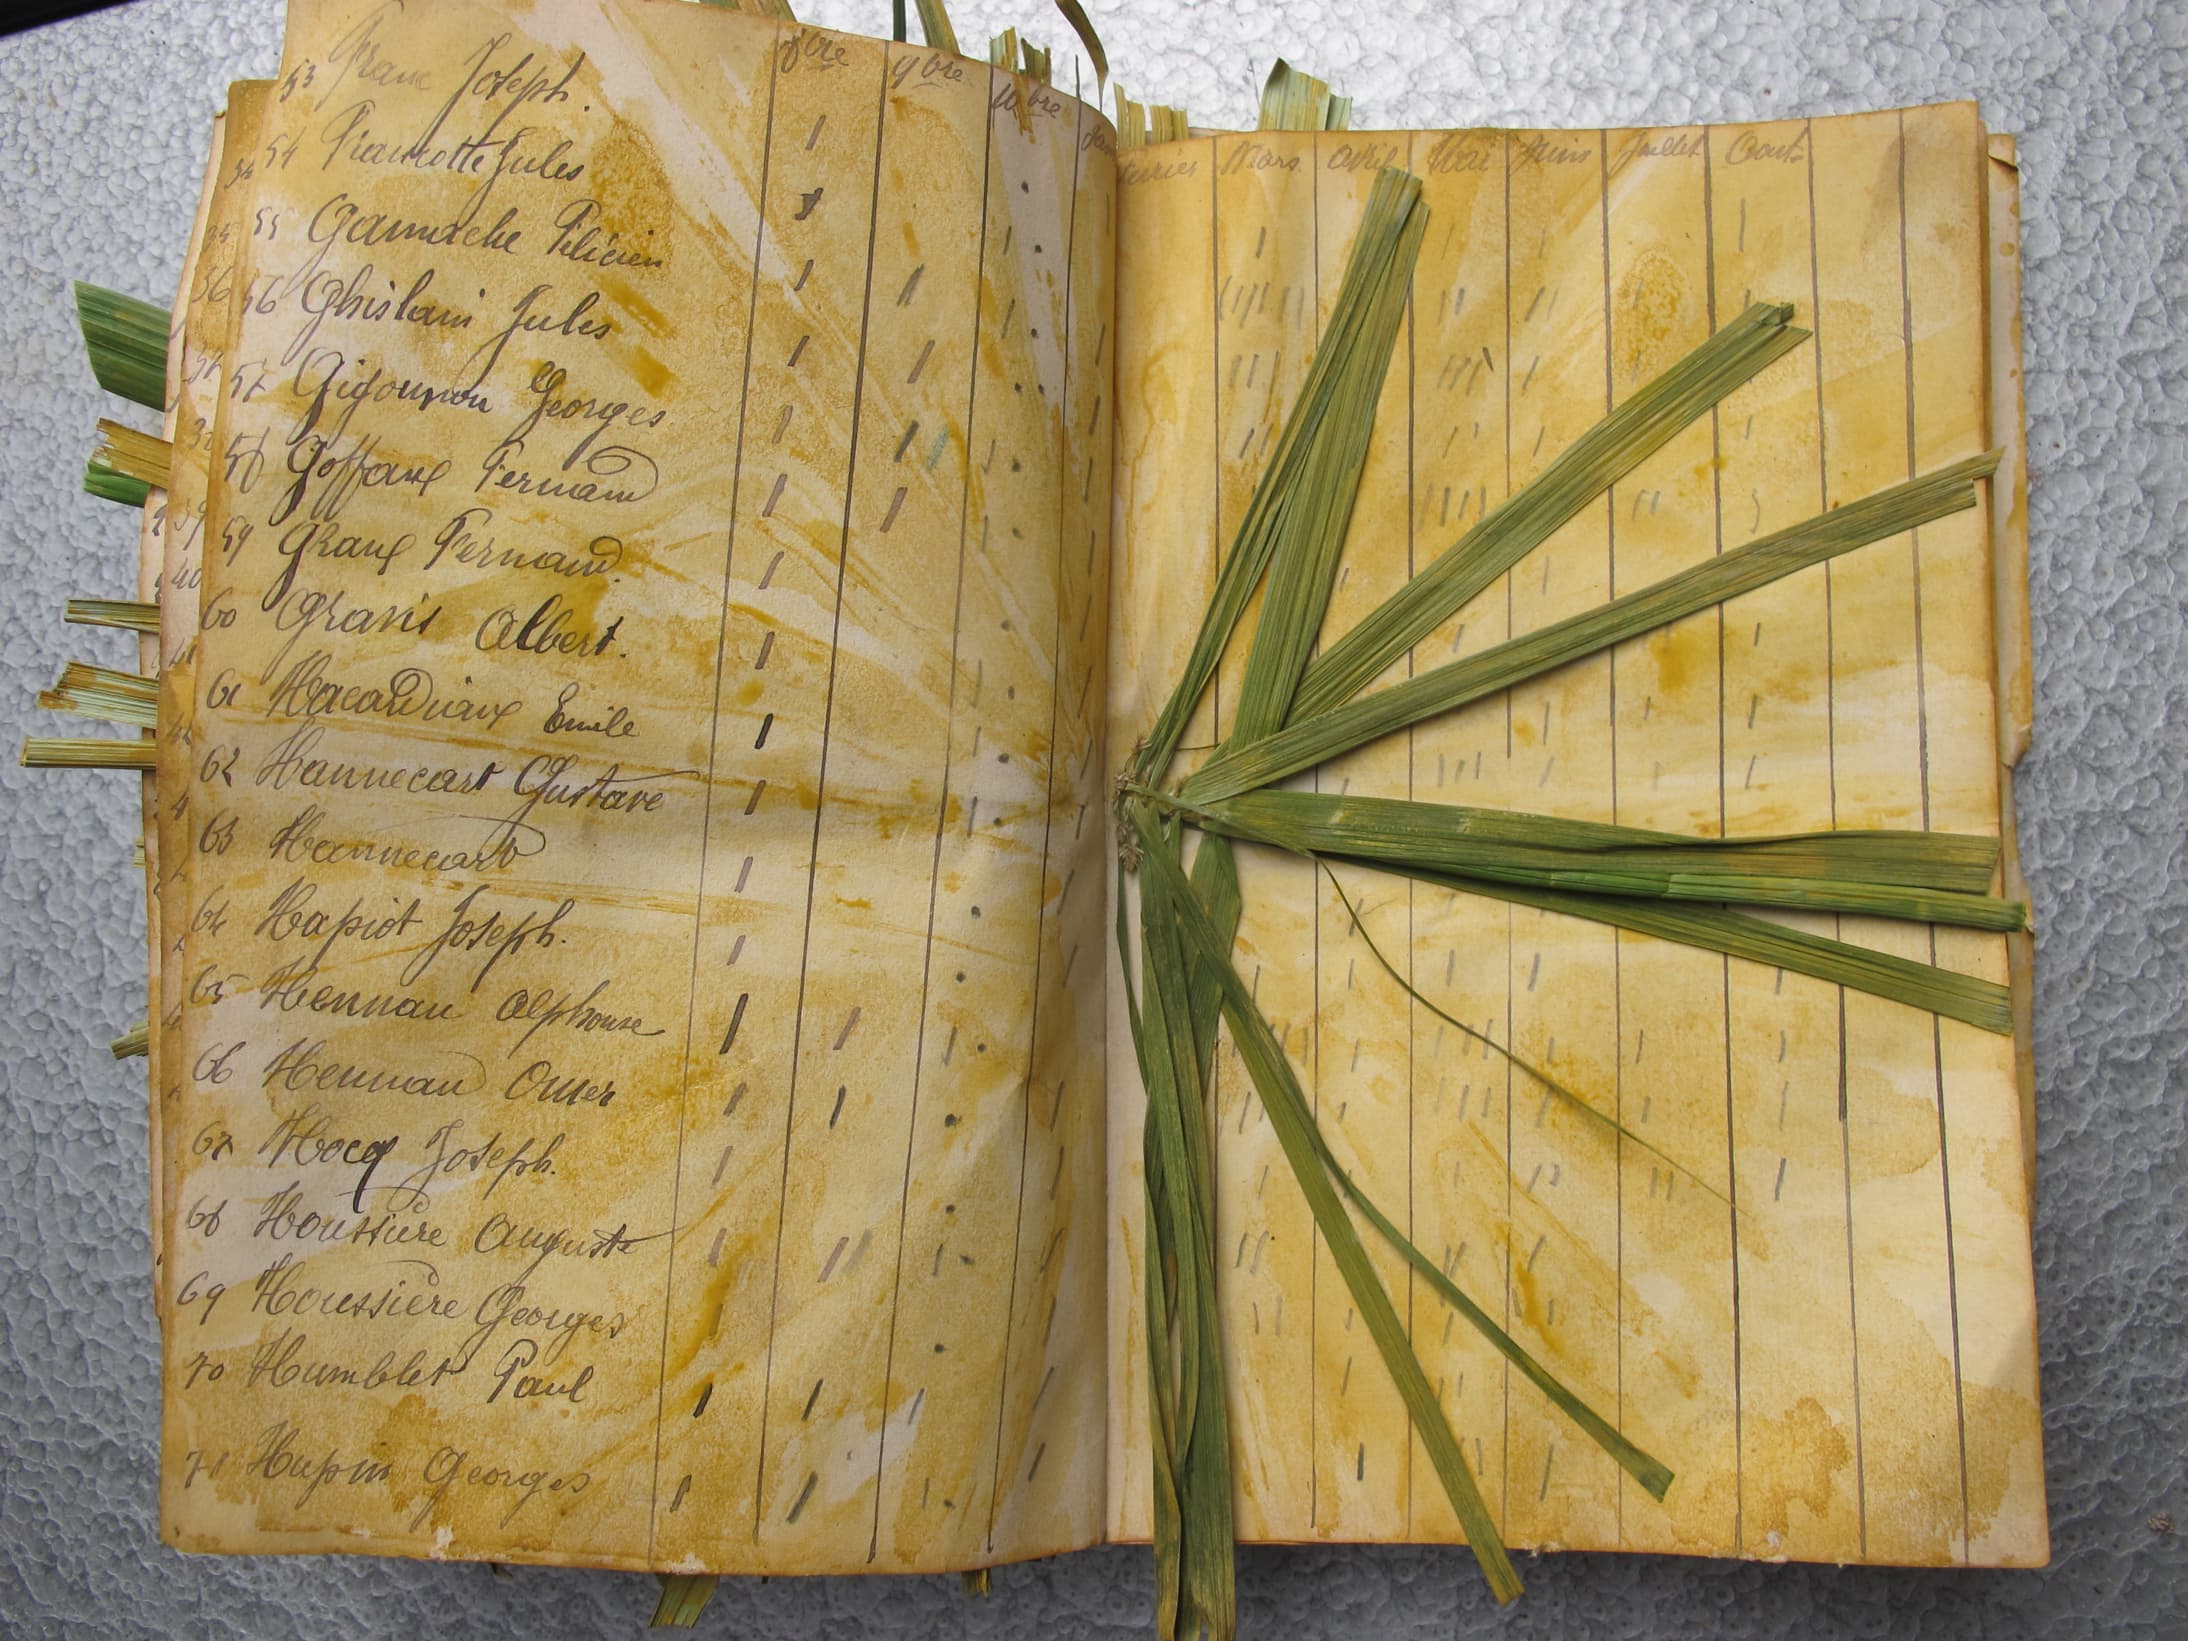 8bre 9bre 10bre Jan
53 Franc Joseph.
54 Francotte Jules
55 Gannuche Félicien
56 Ghislain Jules
57 Gigounon Georges
58 Goffaux Fernand
59 Graux Fernand.
60 Gravis Albert.
61 Hacardiaux Emile
62 Hannecart Gustave
63 Hannecart
64 Hapiot Joseph.
65 Hennau Alphonse
66 Hennau Omer
67 Hocq Joseph.
68 Houssière Auguste
69 Houssière Georges
70 Humblet Paul
71 Hupin Georges
34
35
36
39
40
41
février Mars Avril Mai Juin Juillet Aout